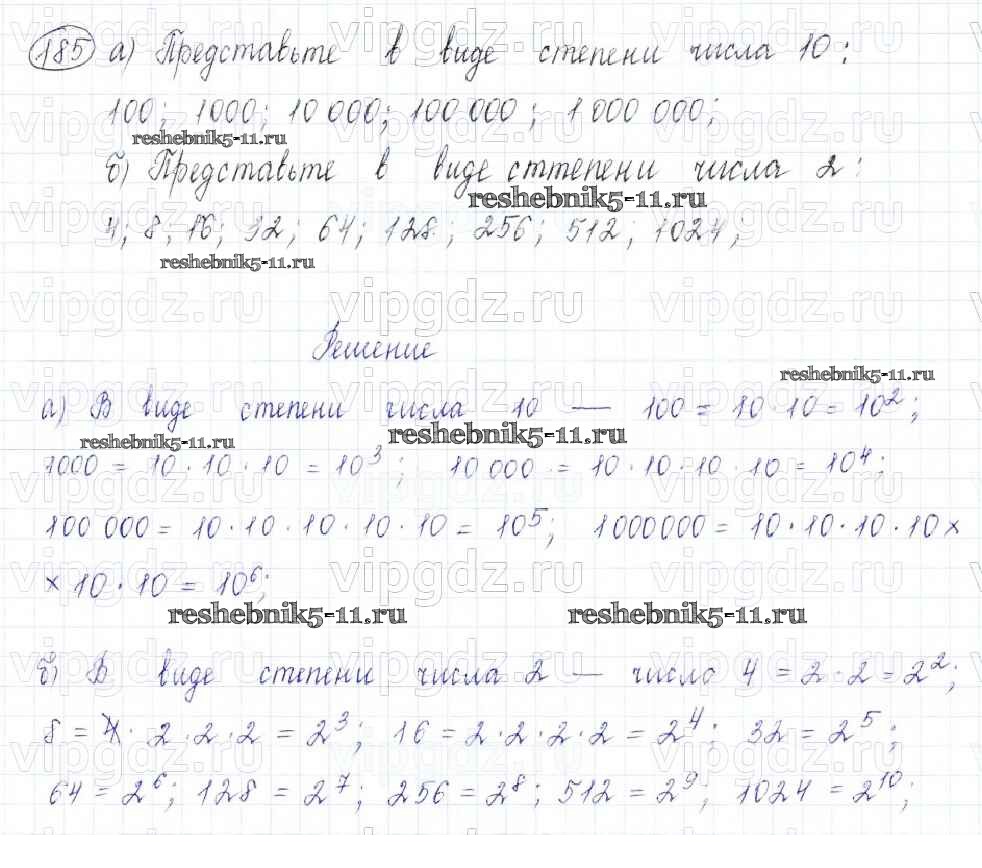 185 а) Представьте в виде степени числа 10:
100; 1000; 10 000; 100 000; 1 000 000;
reshebnik5-11.ru
б) Представьте в виде сттепени числа 2:
reshebnik5-11.ru
4; 8; 16; 32; 64; 128; 256; 512; 1024;
reshebnik5-11.ru
vipgdz.ru vipgdz.ru vipgdz.ru
Решение
reshebnik5-11.ru
а) В виде степени числа 10 — 100 = 10 · 10 = 10²;
reshebnik5-11.ru reshebnik5-11.ru
1000 = 10 · 10 · 10 = 10³; 10 000 = 10 · 10 · 10 · 10 = 10⁴;
100 000 = 10 · 10 · 10 · 10 · 10 = 10⁵; 1000000 = 10 · 10 · 10 · 10 ×
× 10 · 10 = 10⁶;
reshebnik5-11.ru reshebnik5-11.ru
б) В виде степени числа 2 — число 4 = 2 · 2 = 2²;
8 = 2 · 2 · 2 = 2³; 16 = 2 · 2 · 2 · 2 = 2⁴; 32 = 2⁵;
64 = 2⁶; 128 = 2⁷; 256 = 2⁸; 512 = 2⁹; 1024 = 2¹⁰;